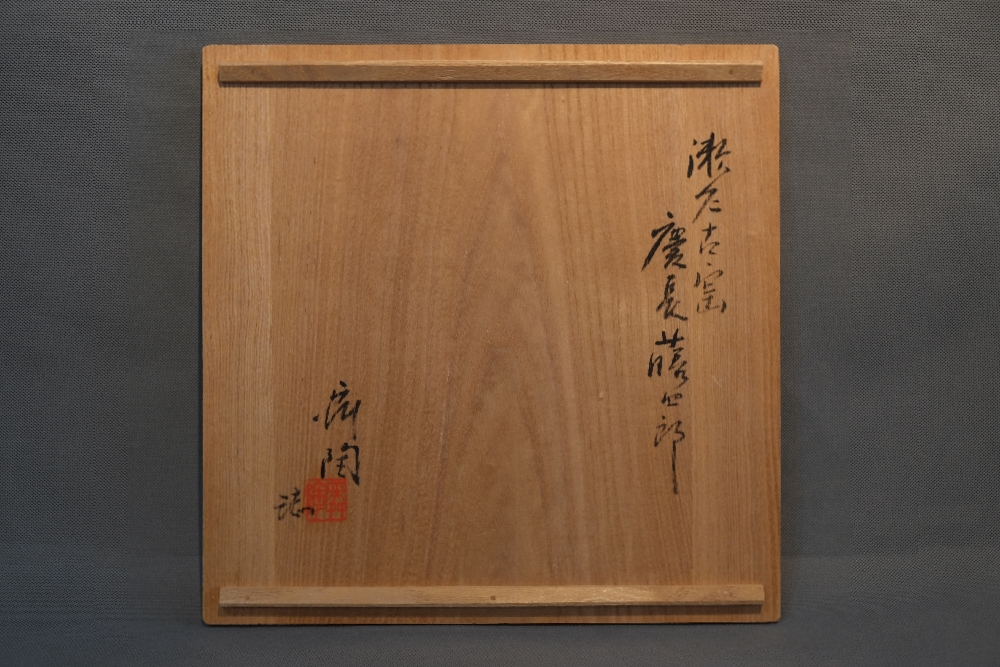 瀬戸古窯
慶長藤四郎
陶
誌